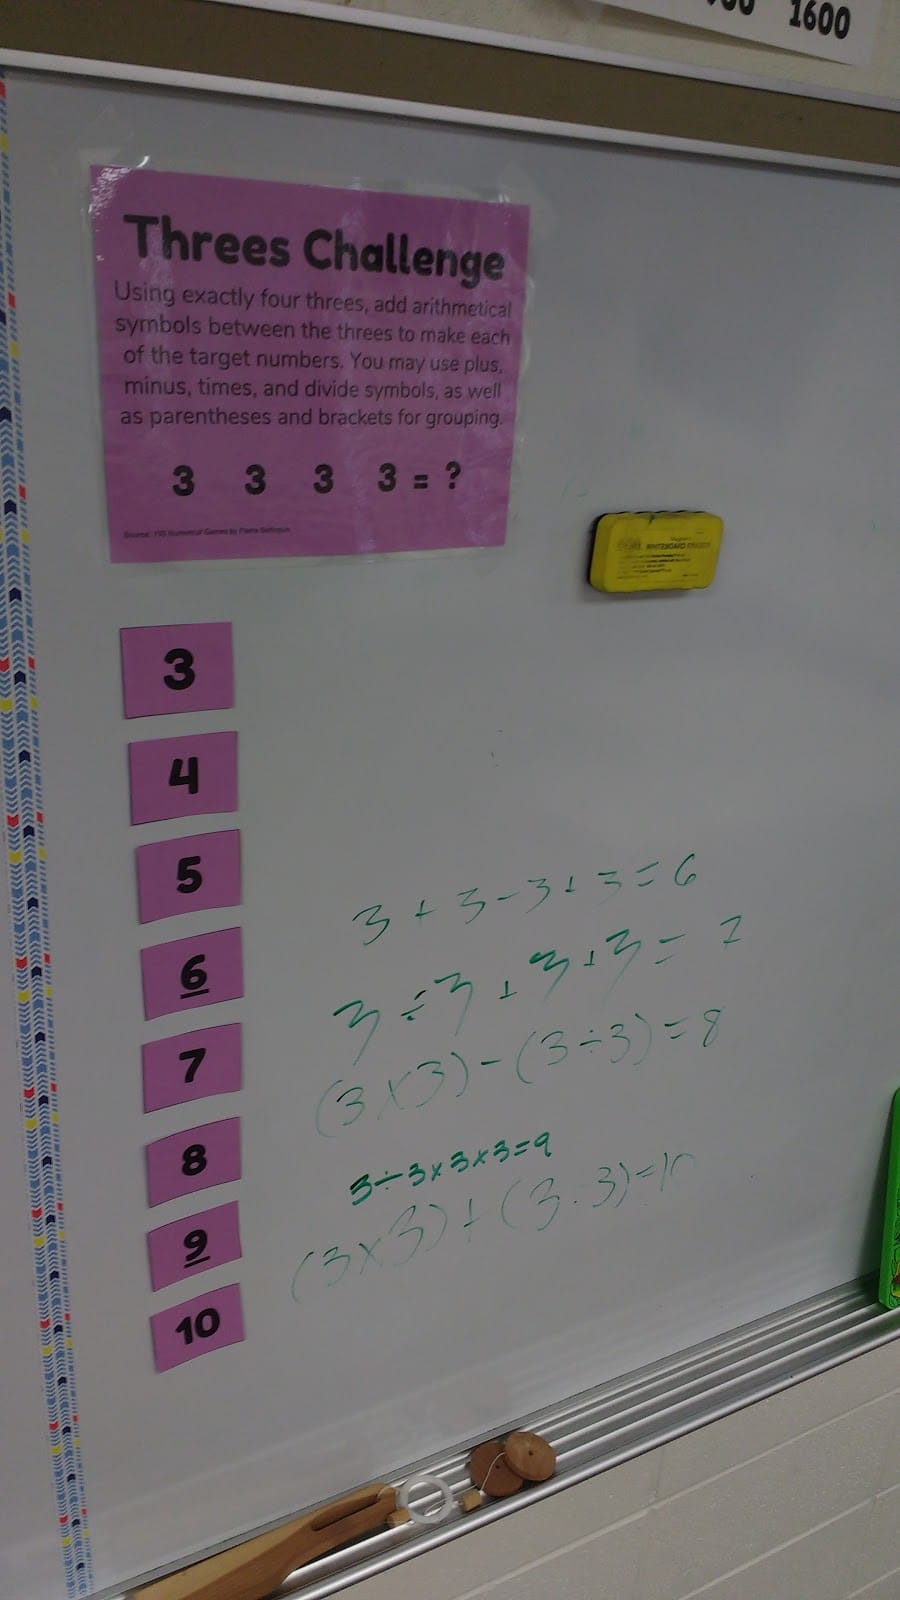 1600
Threes Challenge
Using exactly four threes, add arithmetical
symbols between the threes to make each
of the target numbers. You may use plus,
minus, times, and divide symbols, as well
as parentheses and brackets for grouping.
3 3 3 3 = ?
Source: 100 Numerical Games by Pierre Berloquin
WHITEBOARD ERASER
3
4
5
3 + 3 - 3 + 3 = 6
6
3 ÷ 3 + 3 + 3 = 7
7
(3 × 3) - (3 ÷ 3) = 8
8
3 ÷ 3 × 3 × 3 = 9
9
(3 × 3) + (3 ÷ 3) = 10
10